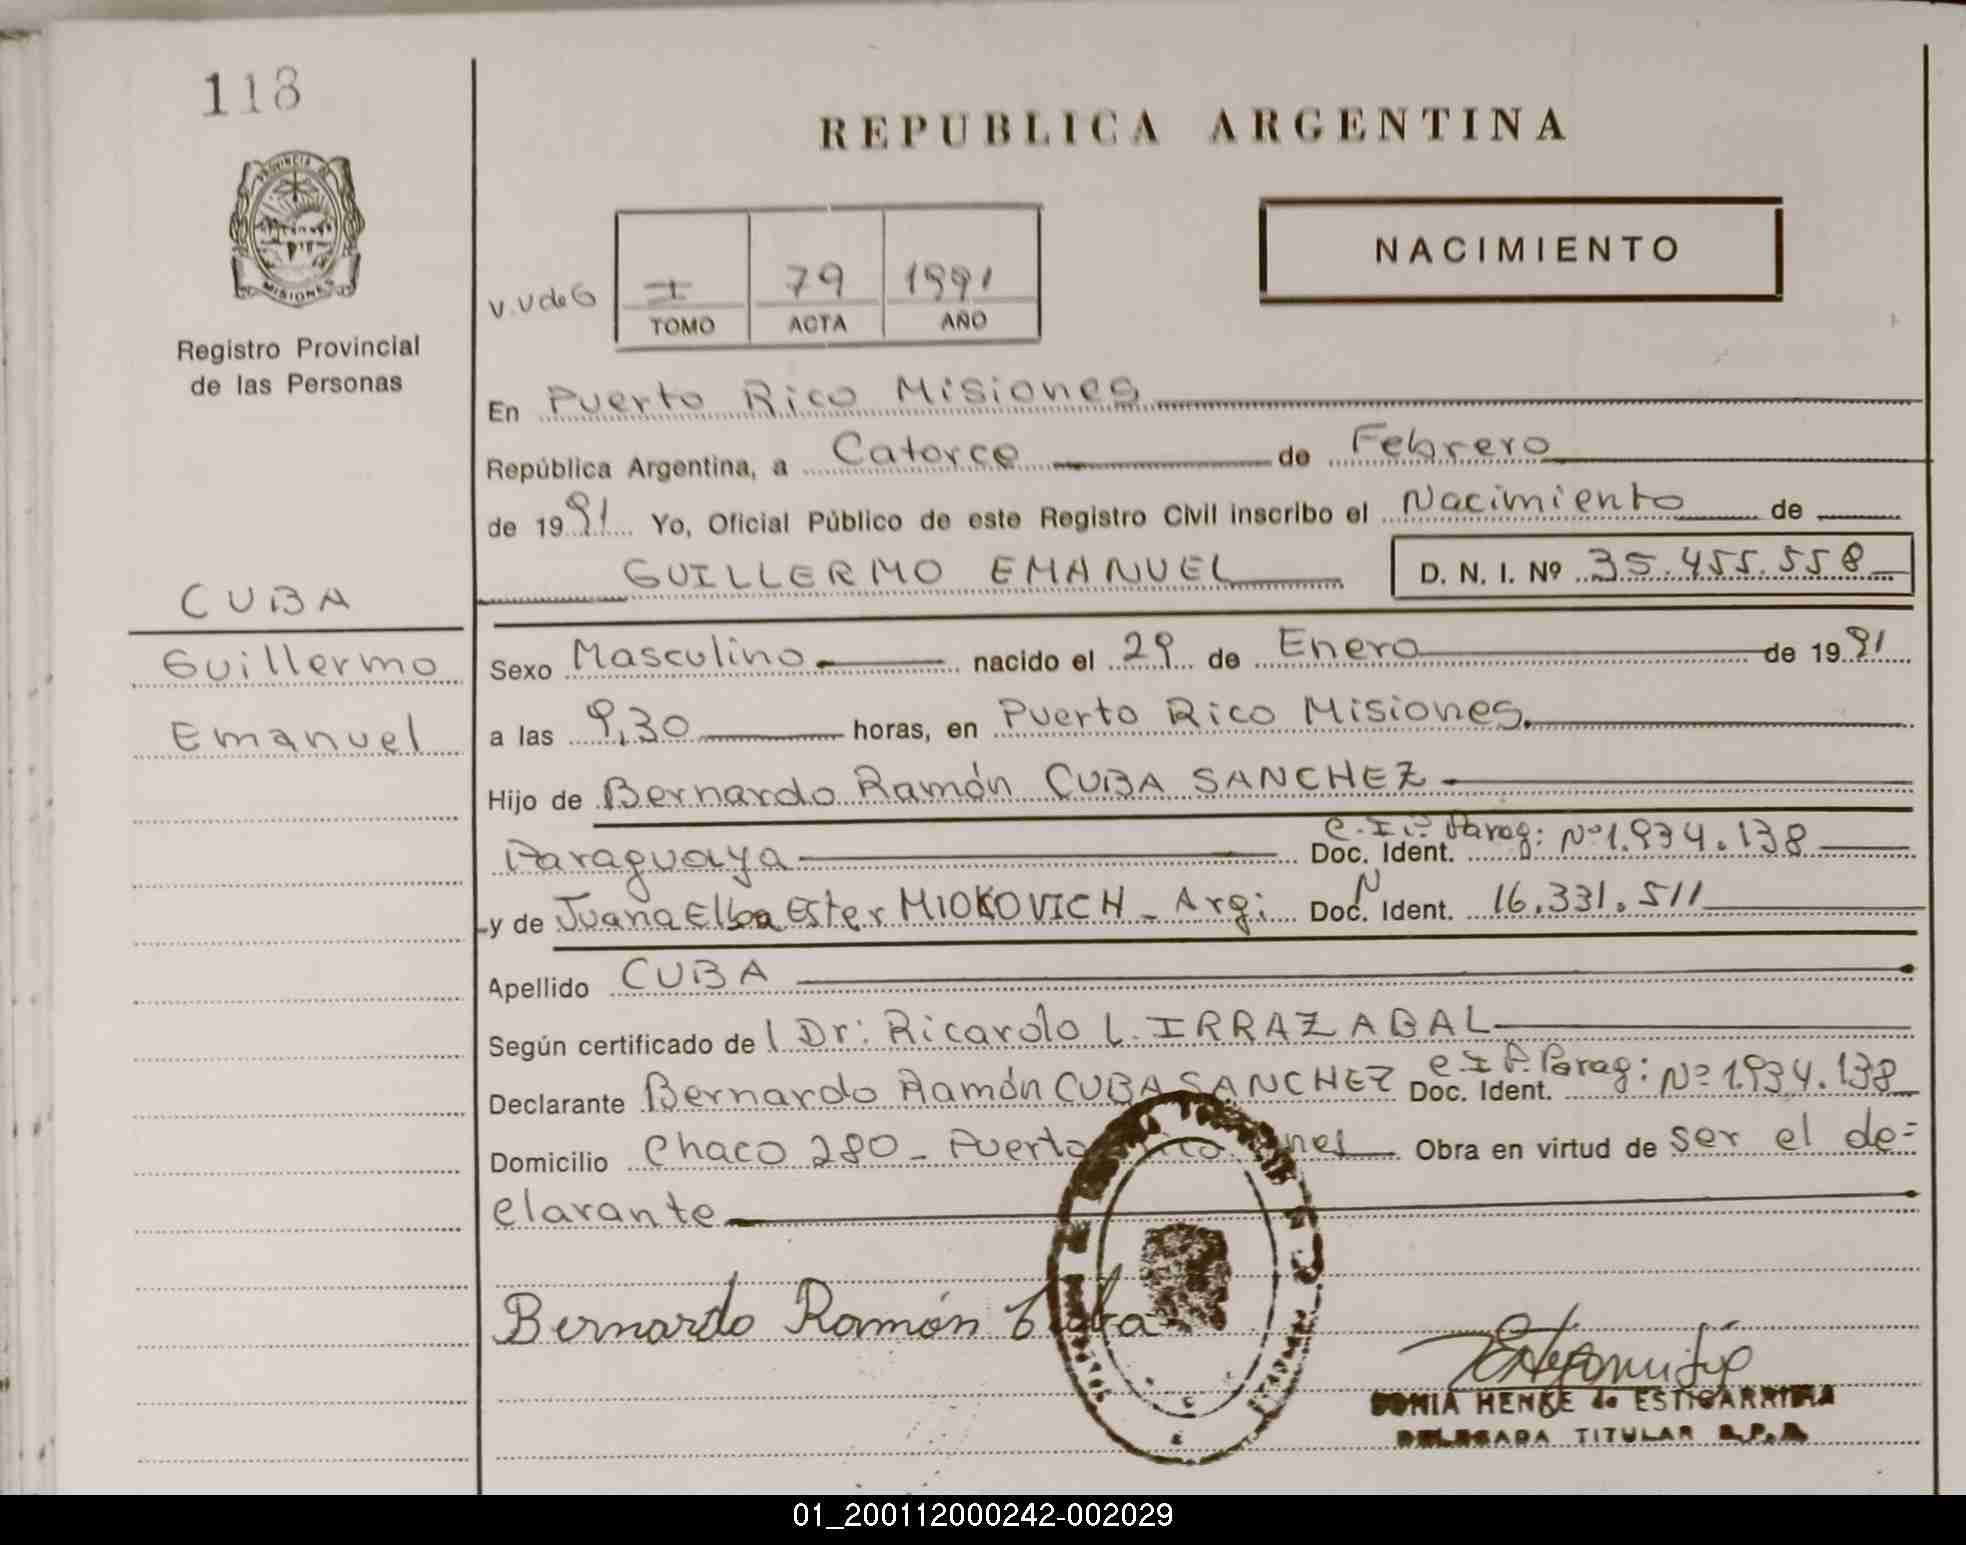 118
REPUBLICA ARGENTINA
PROVINCIA DE
MISIONES
Registro Provincial
de las Personas
NACIMIENTO
V.V de G
I 79 1991
TOMO ACTA AÑO
En Puerto Rico Misiones
República Argentina, a Catorce de Febrero
de 1991 Yo, Oficial Público de este Registro Civil inscribo el Nacimiento de
GUILLERMO EMANUEL D. N. I. Nº 35.455.558
CUBA
Guillermo
Emanuel
Sexo Masculino nacido el 29 de Enero de 1991
a las 9,30 horas, en Puerto Rico Misiones.
Hijo de Bernardo Ramón CUBA SANCHEZ
Paraguaya Doc. Ident. C.I.P. Parag: Nº 1.934.138
y de Juana Elba Ester MIOKOVICH - Arg: Doc. N Ident. 16.331.511
Apellido CUBA
Según certificado del Dr: Ricardo L. IRRAZABAL
Declarante Bernardo Ramón CUBA SANCHEZ Doc. Ident. C.I.P. Parag: Nº 1.934.138
Domicilio Chaco 280 - Puerto Obra en virtud de ser el de=
clarante
Bernardo Ramón Cuba
SONIA HENKE de ESTIGARRIBIA
DELEGADA TITULAR R.P.
01_200112000242-002029